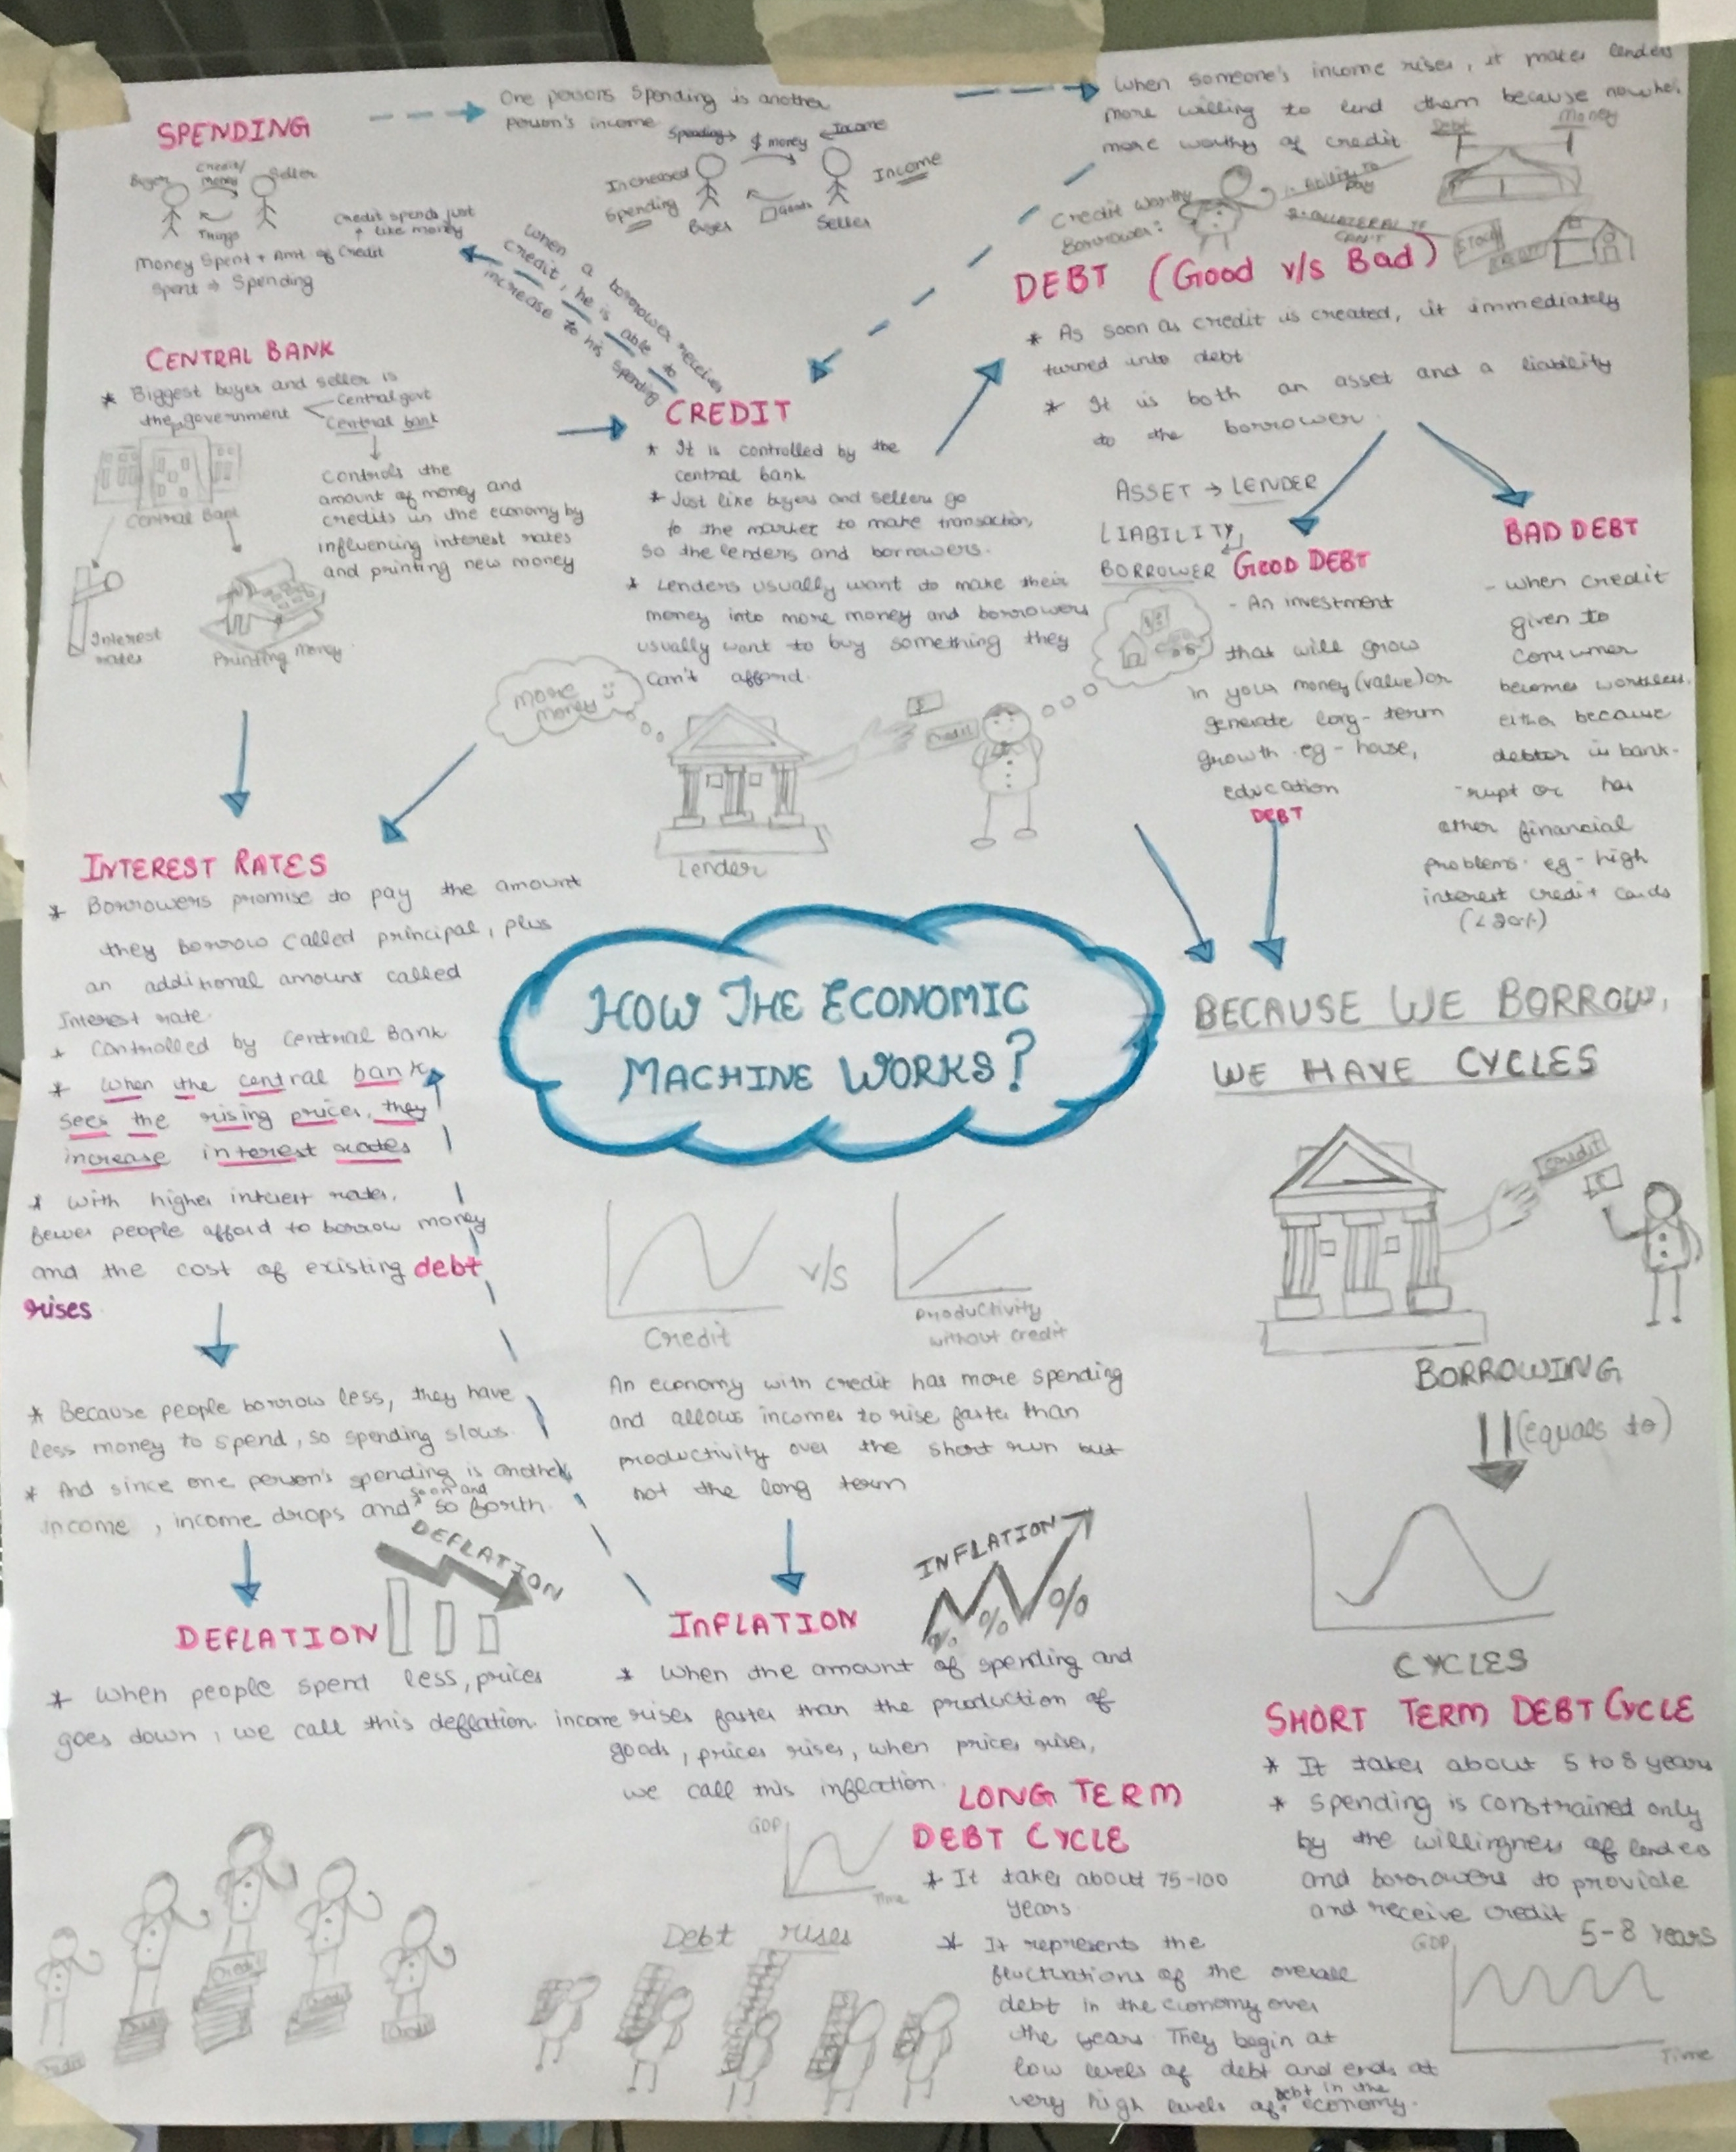 SPENDING
Buyer
Credit/
money
Seller
Things
Credit spends just
like money
Money Spent + Amt of Credit
Spent → Spending
One persons spending is another
person's income
Spending
$ money
Income
Increased
Spending
Buyer
Goods
Seller
Income
When someone's income rises, it makes lenders
more willing to lend them because now he's
more worthy of credit
Debt
Money
Credit worthy
Borrower:
1. Ability to
pay
2. COLLATERAL IF
CAN'T
When a borrower receives
credit, he is able to
increase to his spending
CENTRAL BANK
* Biggest buyer and seller is
the government
Central govt
Central bank
Controls the
amount of money and
credits in the economy by
influencing interest rates
and printing new money
Central Bank
Interest
rates
Printing money
CREDIT
* It is controlled by the
central bank
* Just like buyers and sellers go
to the market to make transaction,
so the lenders and borrowers.
* Lenders usually want to make their
money into more money and borrowers
usually want to buy something they
can't afford.
more
money
Credit
Lender
DEBT (Good v/s Bad)
* As soon as credit is created, it immediately
turned into debt
* It is both an asset and a liability
to the borrower.
ASSET → LENDER
LIABILITY
BORROWER
GOOD DEBT
- An investment
that will grow
in your money (value) or
generate long-term
growth eg - house,
education
DEBT
BAD DEBT
- when credit
given to
consumer
becomes worthless
either because
debtor is bank-
rupt or has
other financial
problems. eg - high
interest credit cards
(<20%)
INTEREST RATES
* Borrowers promise to pay the amount
they borrow called principal, plus
an additional amount called
Interest rate.
* Controlled by Central Bank
* When the central bank
sees the rising prices, they
increase interest rates
* With higher interest rates,
fewer people afford to borrow money
and the cost of existing debt
rises
* Because people borrow less, they have
less money to spend, so spending slows.
* And since one person's spending is another
income, income drops and so on and so forth.
HOW THE ECONOMIC
MACHINE WORKS?
Credit
v/s
Productivity
without credit
An economy with credit has more spending
and allows incomes to rise faster than
productivity over the short run but
not the long term
BECAUSE WE BORROW,
WE HAVE CYCLES
Credit
BORROWING
(equals to)
CYCLES
DEFLATION
DEFLATION
* When people spent less, prices
goes down, we call this deflation.
INFLATION
% % %
INFLATION
* When the amount of spending and
income rises faster than the production of
goods, prices rises, when prices rises,
we call this inflation.
Credit
Debt rises
GDP
Time
LONG TERM
DEBT CYCLE
* It takes about 75-100
years.
* It represents the
fluctuations of the overall
debt in the economy over
the years. They begin at
low levels of debt and ends at
very high levels of debt in the economy.
SHORT TERM DEBT CYCLE
* It takes about 5 to 8 years
* Spending is constrained only
by the willingness of lenders
and borrowers to provide
and receive credit
5-8 Years
GDP
Time